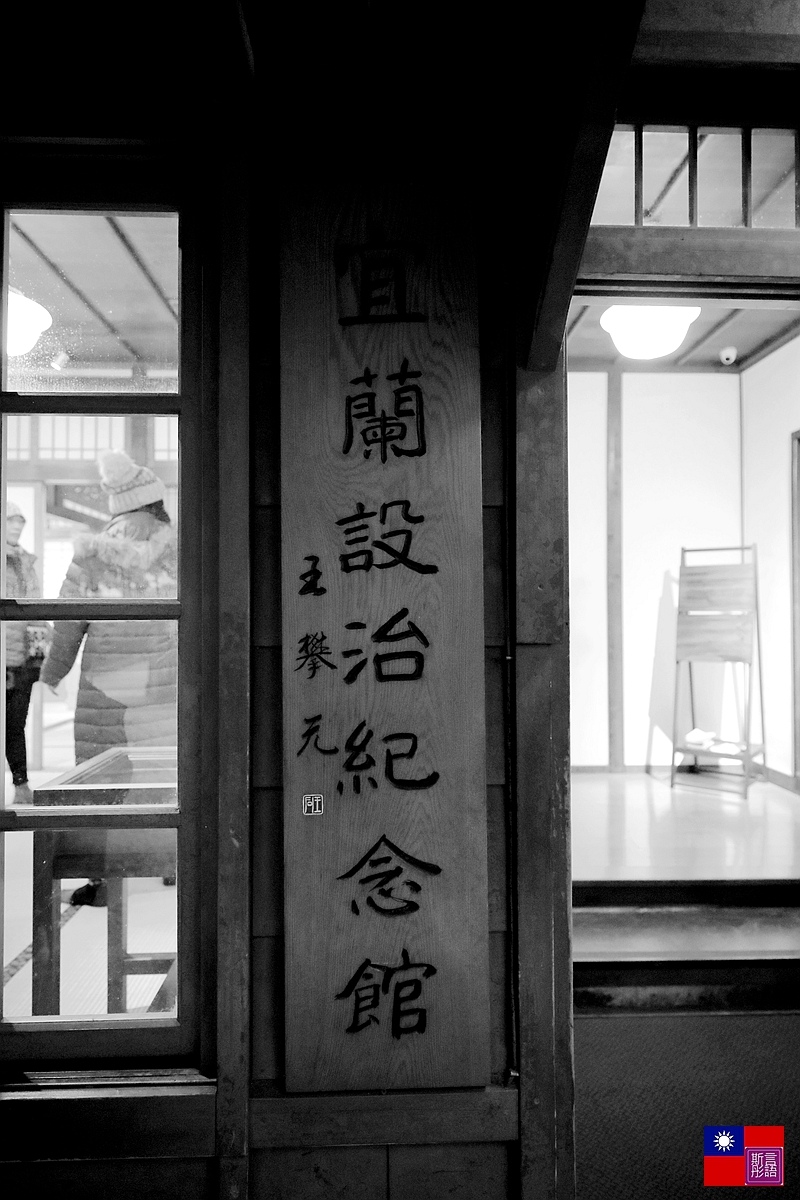 宜蘭設治紀念館
王攀元
斯言
彤語